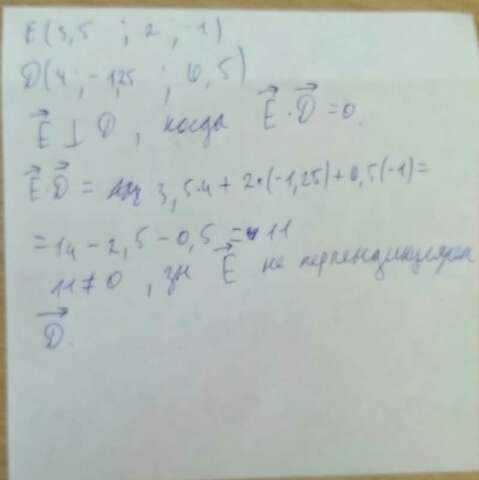 E(3,5 ; 2 ; -1)
D(4 ; -1,25 ; 0,5)
E⃗ ⊥ D , когда E⃗ · D⃗ = 0.
E⃗·D⃗ = 3,5·4 + 2·(-1,25) + 0,5(-1) =
= 14 - 2,5 - 0,5 = 11
11 ≠ 0 , E⃗ не перпендикулярен
D⃗.